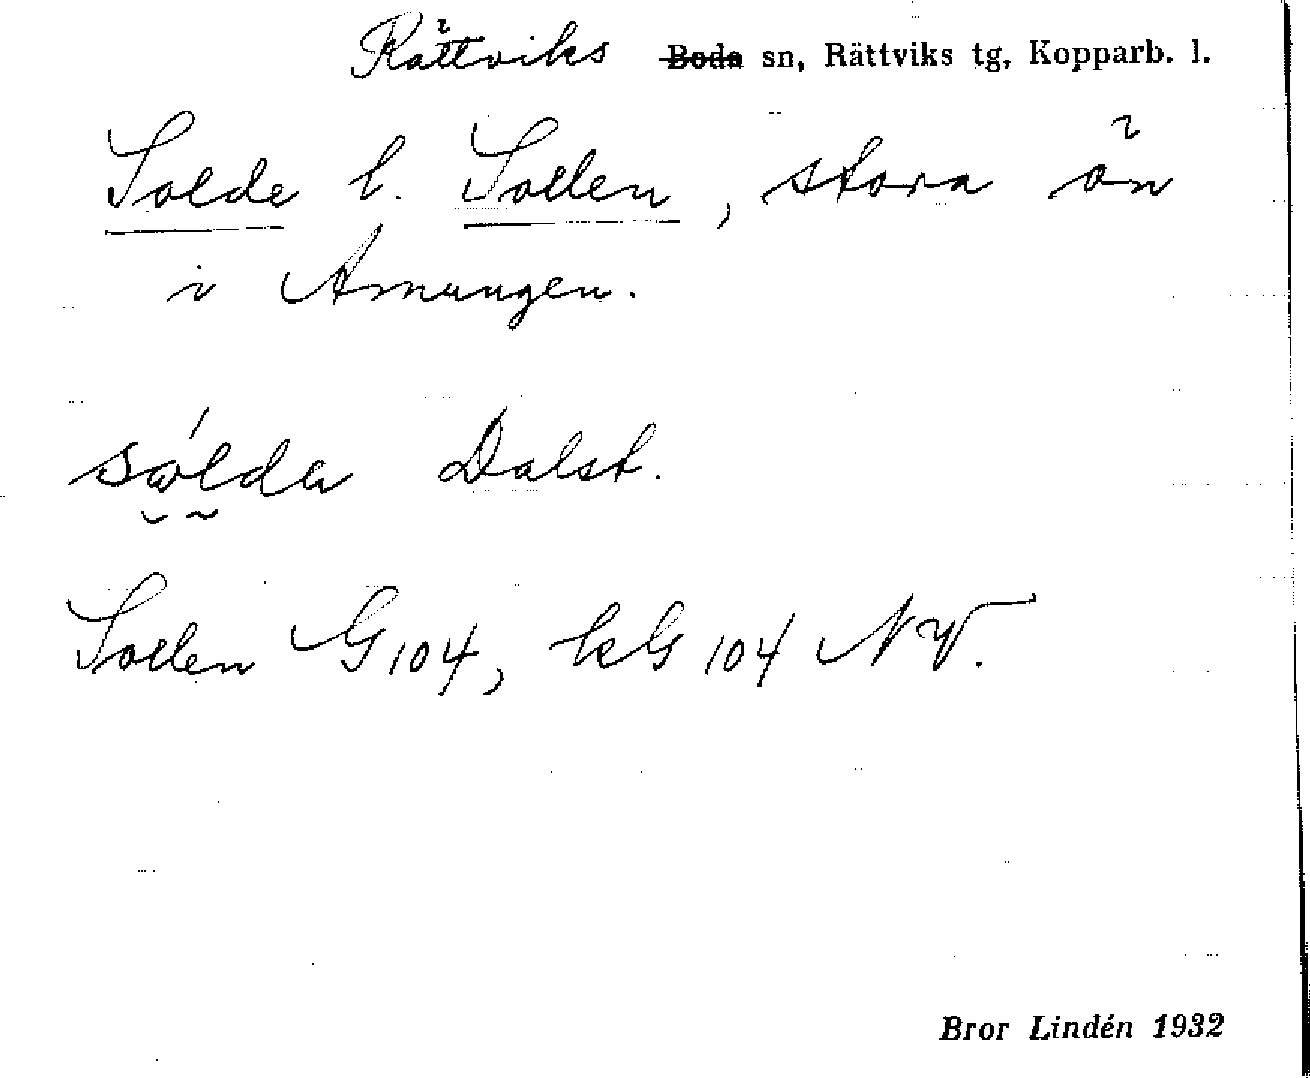 Rättviks Boda sn, Rättviks tg, Kopparb. l.
Solde l. Sollen, stora ön
i Amungen.
sólda Dalst.
Sollen G104, kG 104 NV.
Bror Lindén 1932